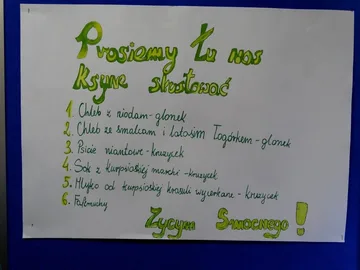 Prosiemy tu nos
ksyne skustować
1. Chleb z niodam - glonek
2. Chleb ze smalcam i latosim łogórkem - glonek
3. Psicie niantowe - kruzycek
4. Sok z kurpsioskiej marchi - kruzycek
5. Mlyko od kurpsioskiej krasuli wycyrkane - kruzycek
6. Fafernuchy
Zycym Smacnego!